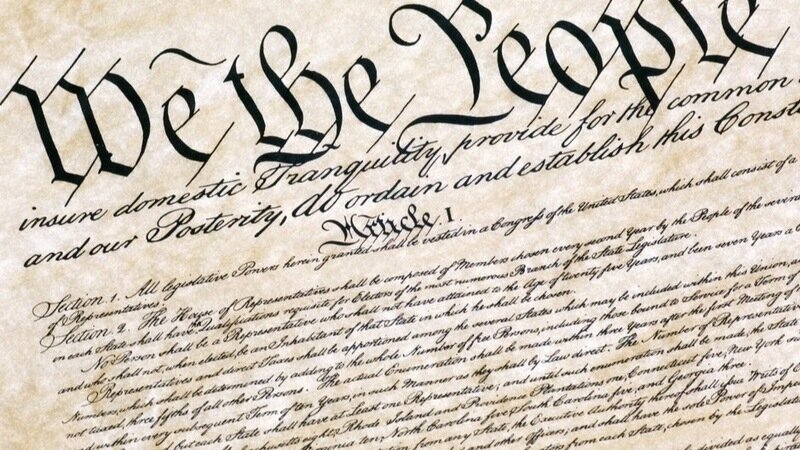 We the People
insure domestic Tranquility, provide for the common
and our Posterity, do ordain and establish this Const
Article I.
Section 1. All legislative Powers herein granted shall be vested in a Congress of the United States, which shall consist of a
of Representatives.
Section 2. The House of Representatives shall be composed of Members chosen every second Year by the People of the several
in each State shall have the Qualifications requisite for Electors of the most numerous Branch of the State Legislature.
No Person shall be a Representative who shall not have attained to the Age of twenty five Years, and been seven Years a C
and who shall not, when elected, be an Inhabitant of that State in which he shall be chosen.
Representatives and direct Taxes shall be apportioned among the several States which may be included within this Union, a
Numbers, which shall be determined by adding to the whole Number of free Persons, including those bound to Service for a Term of
not taxed, three fifths of all other Persons. The actual Enumeration shall be made within three Years after the first Meeting of
and within every subsequent Term of ten Years, in such Manner as they shall by Law direct. The Number of Representatives
but each State shall have at Least one Representative; and until such enumeration shall be made, the State
eight, Rhode Island and Providence Plantations one, Connecticut five, New York
ten, North Carolina five, South Carolina five, and Georgia three.
from any State, the Executive Authority thereof shall issue Writs of
and other Officers; and shall have the sole Power of Imp
from each State, chosen by the Legislat
divided as equally